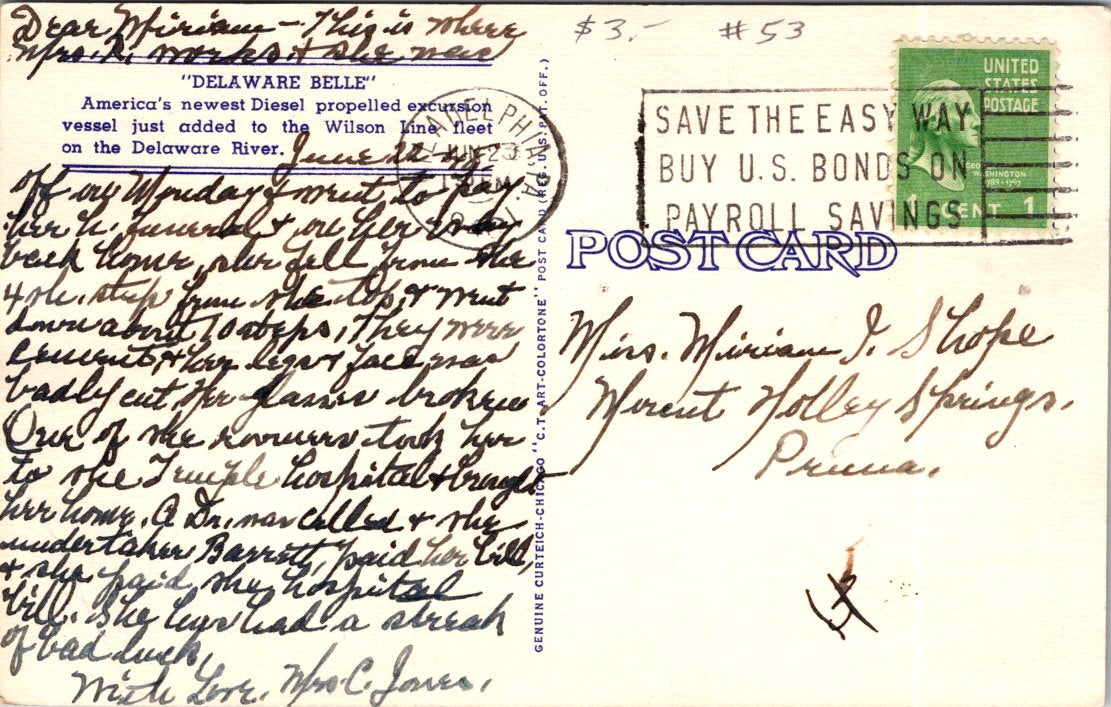 Dear Miriam - This is where
Mrs. R. works & she was
"DELAWARE BELLE"
America's newest Diesel propelled excursion
vessel just added to the Wilson Line fleet
on the Delaware River.
June 22
off on Monday & went to pay
her u. funeral & on her way
back home, she fell from the
4th. step from the top, & went
down about 10 steps, They were
cement, & her legs & face was
badly cut Her glasses broken
One of the roomers took her
to the Temple hospital & brought
her home. A Dr. was called & the
undertaker Barrett, paid her bill,
& she paid the hospital
bill. She has had a streak
of bad luck,
With Love, Mrs. C. Jones.
GENUINE CURTEICH-CHICAGO "C.T. ART-COLORTONE" POST CARD (REG. U.S. PAT. OFF.)
$3.- #53
PHILADELPHIA, PA.
JUN 23
1951
SAVE THE EASY WAY
BUY U.S. BONDS ON
PAYROLL SAVINGS
UNITED
STATES
POSTAGE
GEORGE
WASHINGTON
1789-1797
1 CENT 1
POST CARD
Miss. Miriam I. Shope
Mount Holley Springs.
Penna.